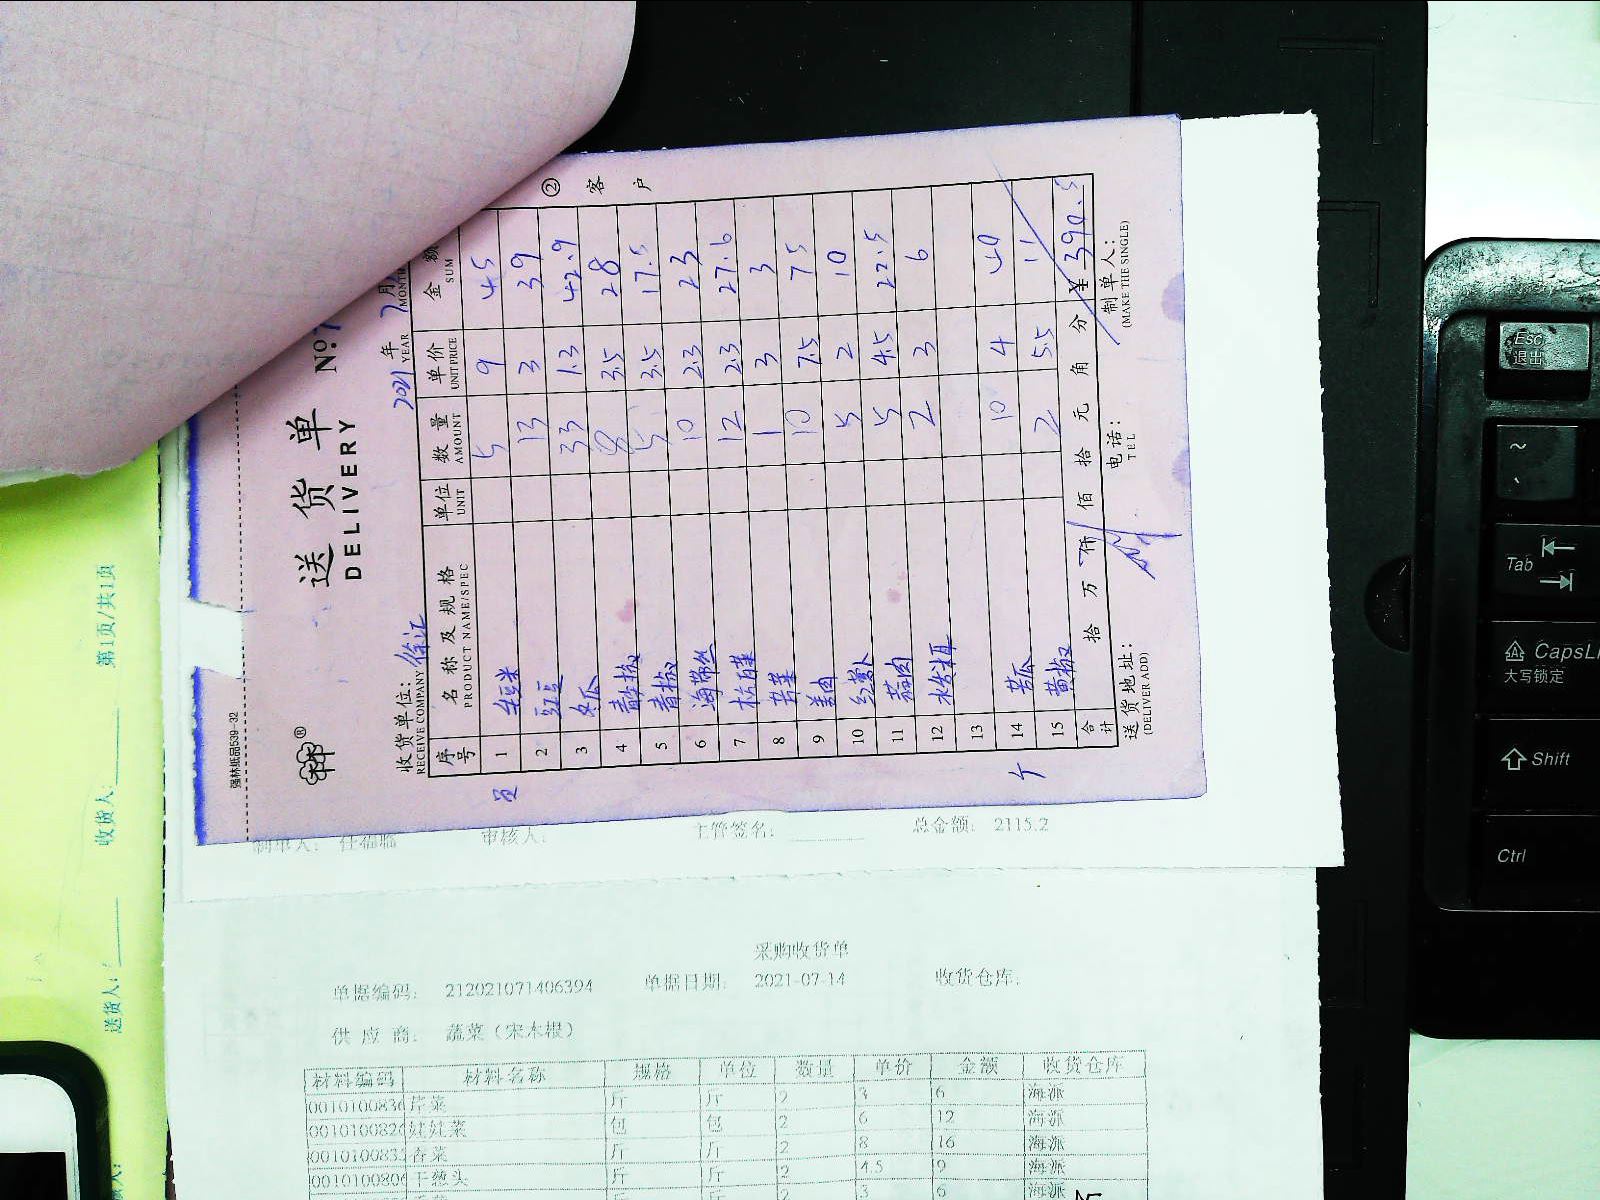 强林纸品539-32
送货单 No:7
DELIVERY
2021 年 7月
YEAR MONTH
收货单位：徐汇
RECEIVE COMPANY
② 客户
序号 名称及规格 单位 数量 单价 金额
PRODUCT NAME/SPEC UNIT AMOUNT UNIT PRICE SUM
1 5 9 45
2 豇豆 13 3 39
3 冬瓜 33 1.3 42.9
4 青椒 8 3.5 28
5 青椒 5 3.5 17.5
6 海带丝 10 2.3 23
7 12 2.3 27.6
8 1 3 3
9 姜肉 10 7.5 75
10 红萝卜 5 2 10
11 蒜肉 5 4.5 22.5
12 水发木耳 2 3 6
13
14 苦瓜 10 4 40
15 黄椒 2 5.5 11
合计 拾 万 仟 佰 拾 元 角 分 ¥ 390.5
送货地址： 电话： 制单人：
(DELIVER ADD) TEL (MAKE THE SINGLE)
审核人： 主管签名： 总金额： 2115.2
采购收货单
单据编码： 212021071406394 单据日期： 2021-07-14 收货仓库：
供 应 商： 蔬菜（宋木根）
材料编码 材料名称 规格 单位 数量 单价 金额 收货仓库
0010100836 芹菜 斤 斤 2 3 6 海派
001010082 娃娃菜 包 包 2 6 12 海派
001010083 香菜 斤 斤 2 8 16 海派
001010080 干葱头 斤 斤 2 4.5 9 海派
斤 斤 2 3 6 海派
第1页/共1页
收货人：
送货人：
Esc
退出
~
Tab
CapsL
大写锁定
Shift
Ctrl